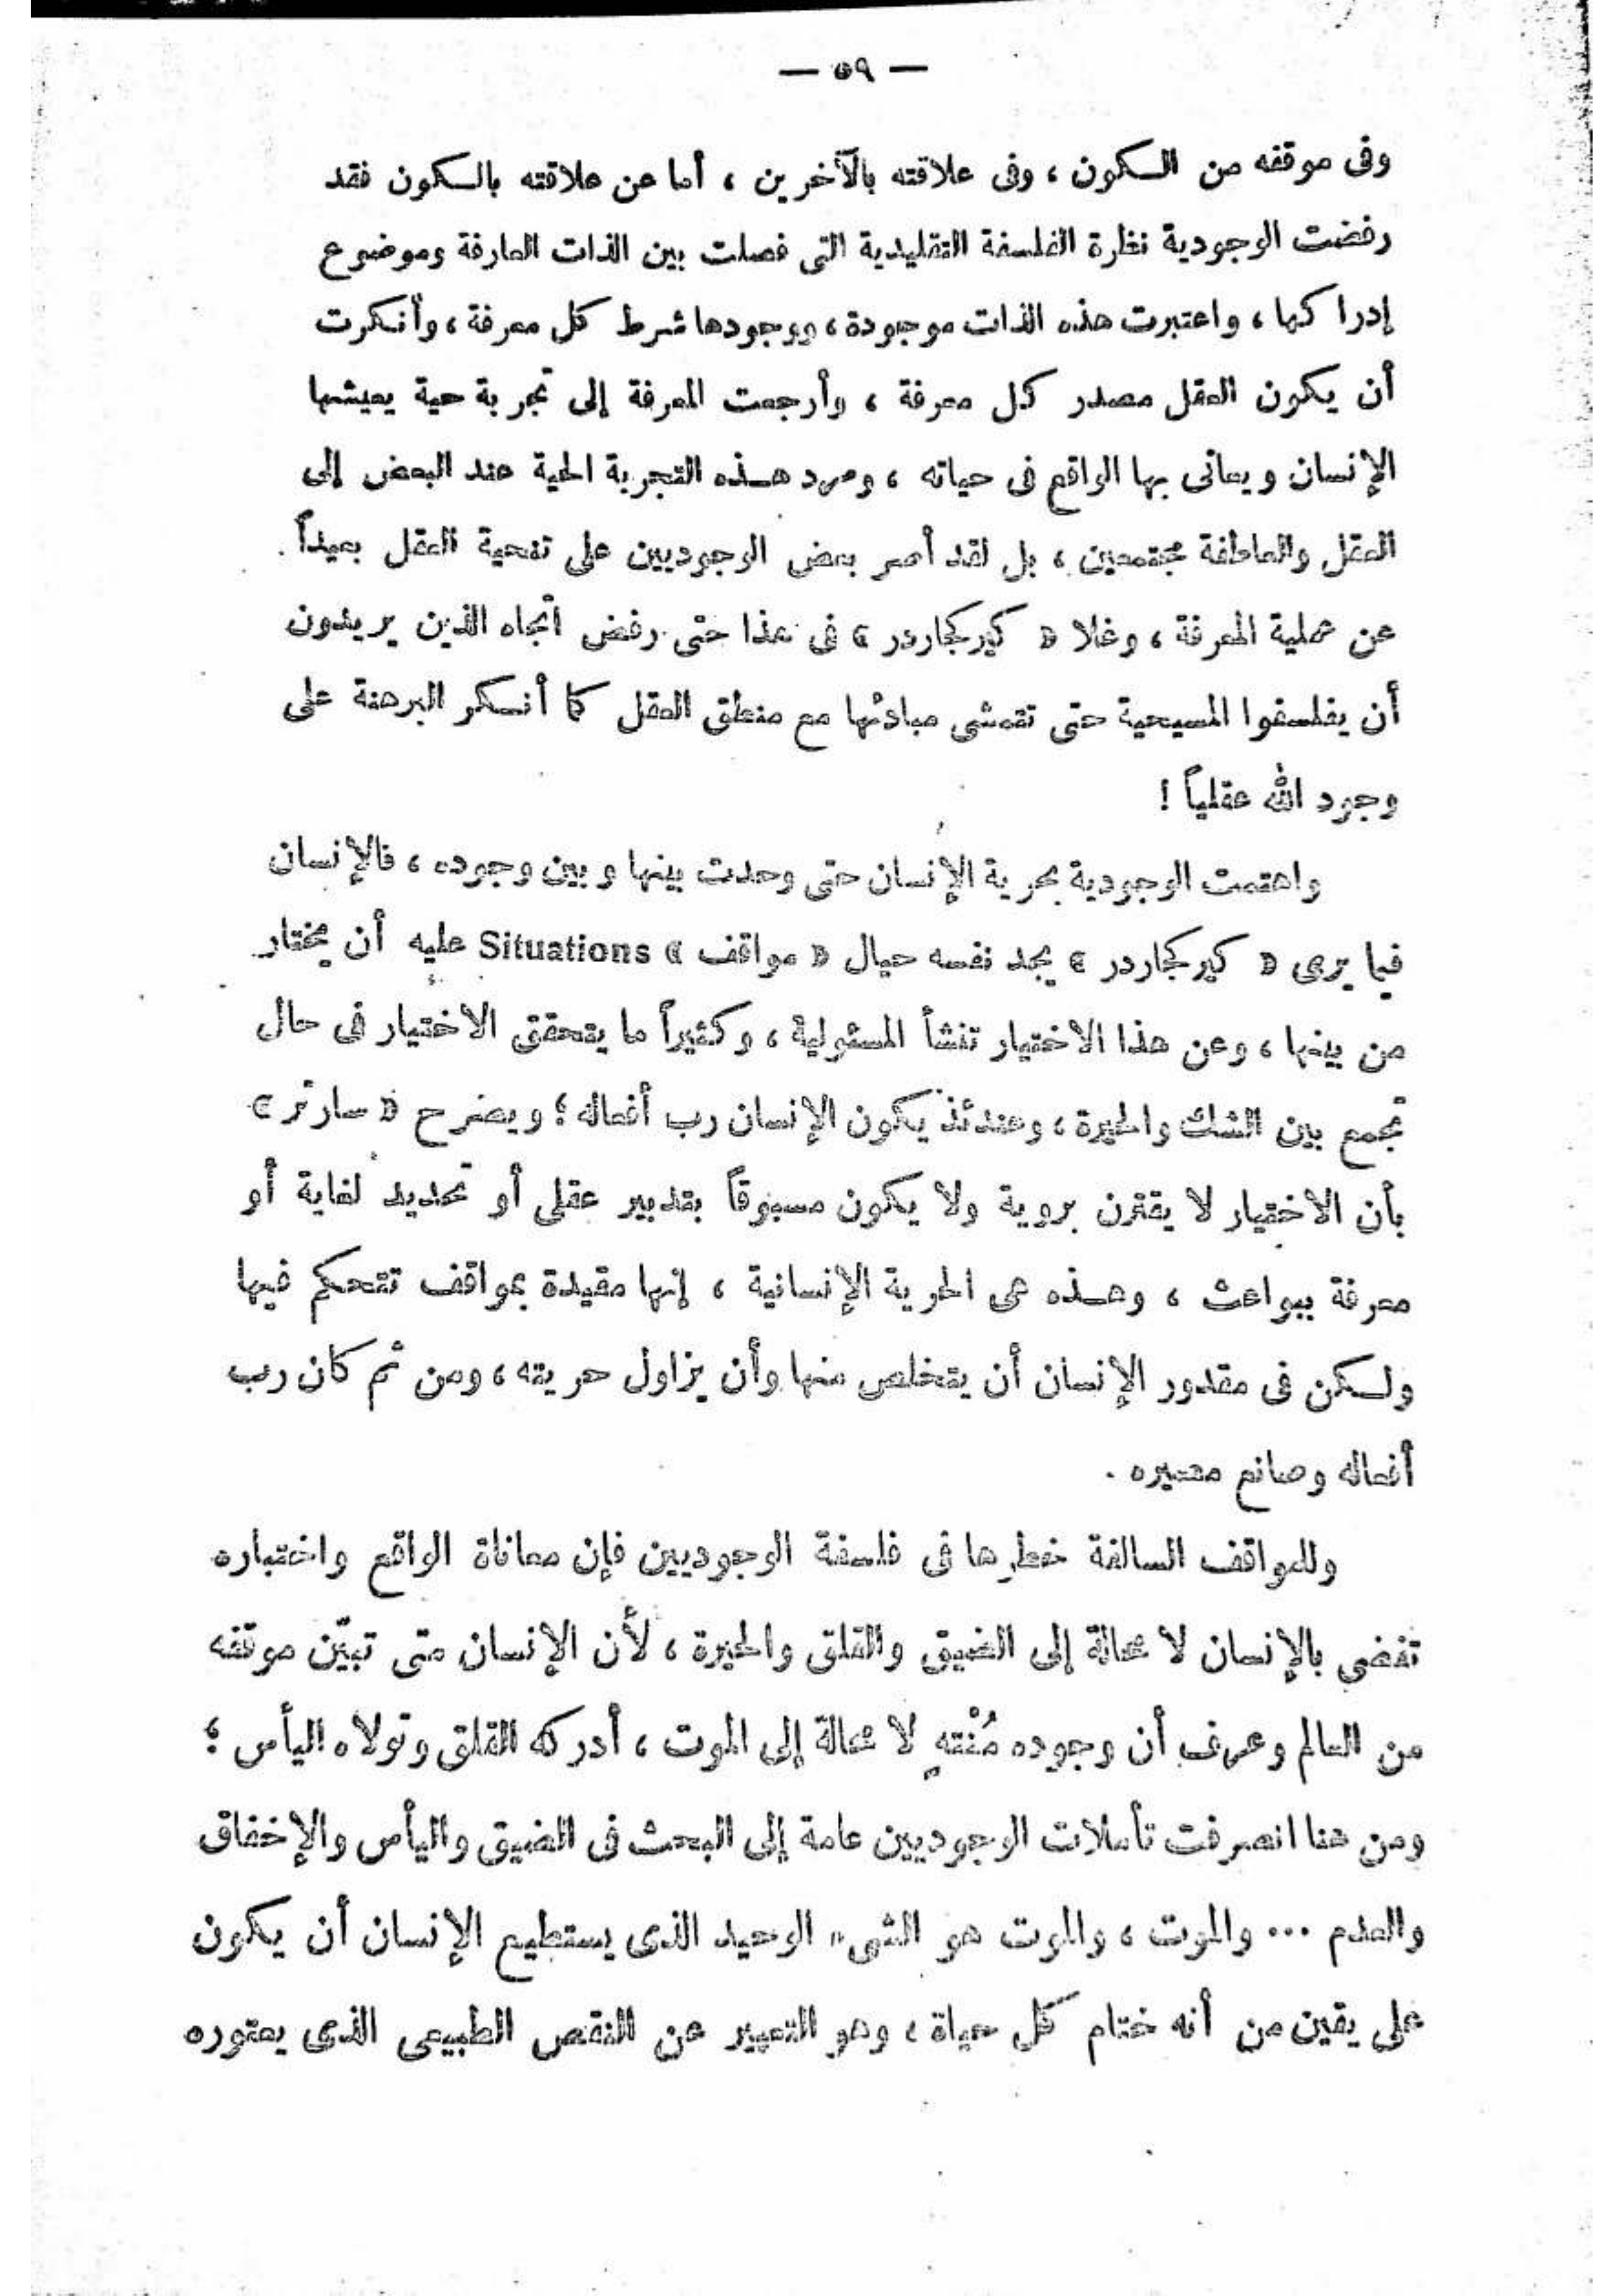 — ٥٩ —
وفى موقفه من الكون ، وفى علاقته بالآخرين ، أما عن علاقته بالكون فقد
رفضت الوجودية نظرة الفلسفة التقليدية التى فصلت بين الذات العارفة وموضوع
إدراكها ، واعتبرت هذه الذات موجودة ، ووجودها شرط كل معرفة ، وأنكرت
أن يكون العقل مصدر كل معرفة ، وأرجعت المعرفة إلى تجربة حية يعيشها
الإنسان ويعانى بها الواقع فى حياته ، ومرد هذه التجربة الحية عند البعض إلى
العقل والعاطفة مجتمعين ، بل لقد أصر بعض الوجوديين على تنحية العقل بعيداً
عن عملية المعرفة ، وغلا « كيركجاردر » فى هذا حتى رفض اتجاه الذين يريدون
أن يفلسفوا المسيحية حتى تتمشى مبادئها مع منطق العقل كما أنكر البرهنة على
وجود الله عقلياً !
واهتمت الوجودية بحرية الإنسان حتى وحدت بينها وبين وجوده ، فالإنسان
فيما يرى « كيركجاردر » يجد نفسه حيال « مواقف » Situations عليه أن يختار
من بينها ، وعن هذا الاختيار تنشأ المسئولية ، وكثيراً ما يتحقق الاختيار فى حال
تجمع بين الشك والحيرة ، وعندئذ يكون الإنسان رب أفعاله ؛ ويصرح « سارتر »
بأن الاختيار لا يقترن بروية ولا يكون مسبوقاً بتدبير عقلى أو تحديد لغاية أو
معرفة ببواعث ، وهذه هى الحرية الإنسانية ، إنها مقيدة بمواقف تتحكم فيها
ولكن فى مقدور الإنسان أن يتخلص منها وأن يزاول حريته ، ومن ثم كان رب
أفعاله وصانع مصيره .
وللمواقف السالفة خطرها فى فلسفة الوجوديين فإن معاناة الواقع واختباره
تفضى بالإنسان لا محالة إلى الضيق والقلق والحيرة ، لأن الإنسان متى تبيّن موقفه
من العالم وعرف أن وجوده مُنْتهٍ لا محالة إلى الموت ، أدركه القلق وتولاه اليأس ؛
ومن هنا انصرفت تأملات الوجوديين عامة إلى البحث فى الضيق واليأس والإخفاق
والعدم ... والموت ، والموت هو الشىء الوحيد الذى يستطيع الإنسان أن يكون
على يقين من أنه ختام كل حياة ، وهو التعبير عن النقص الطبيعى الذى يعتوره